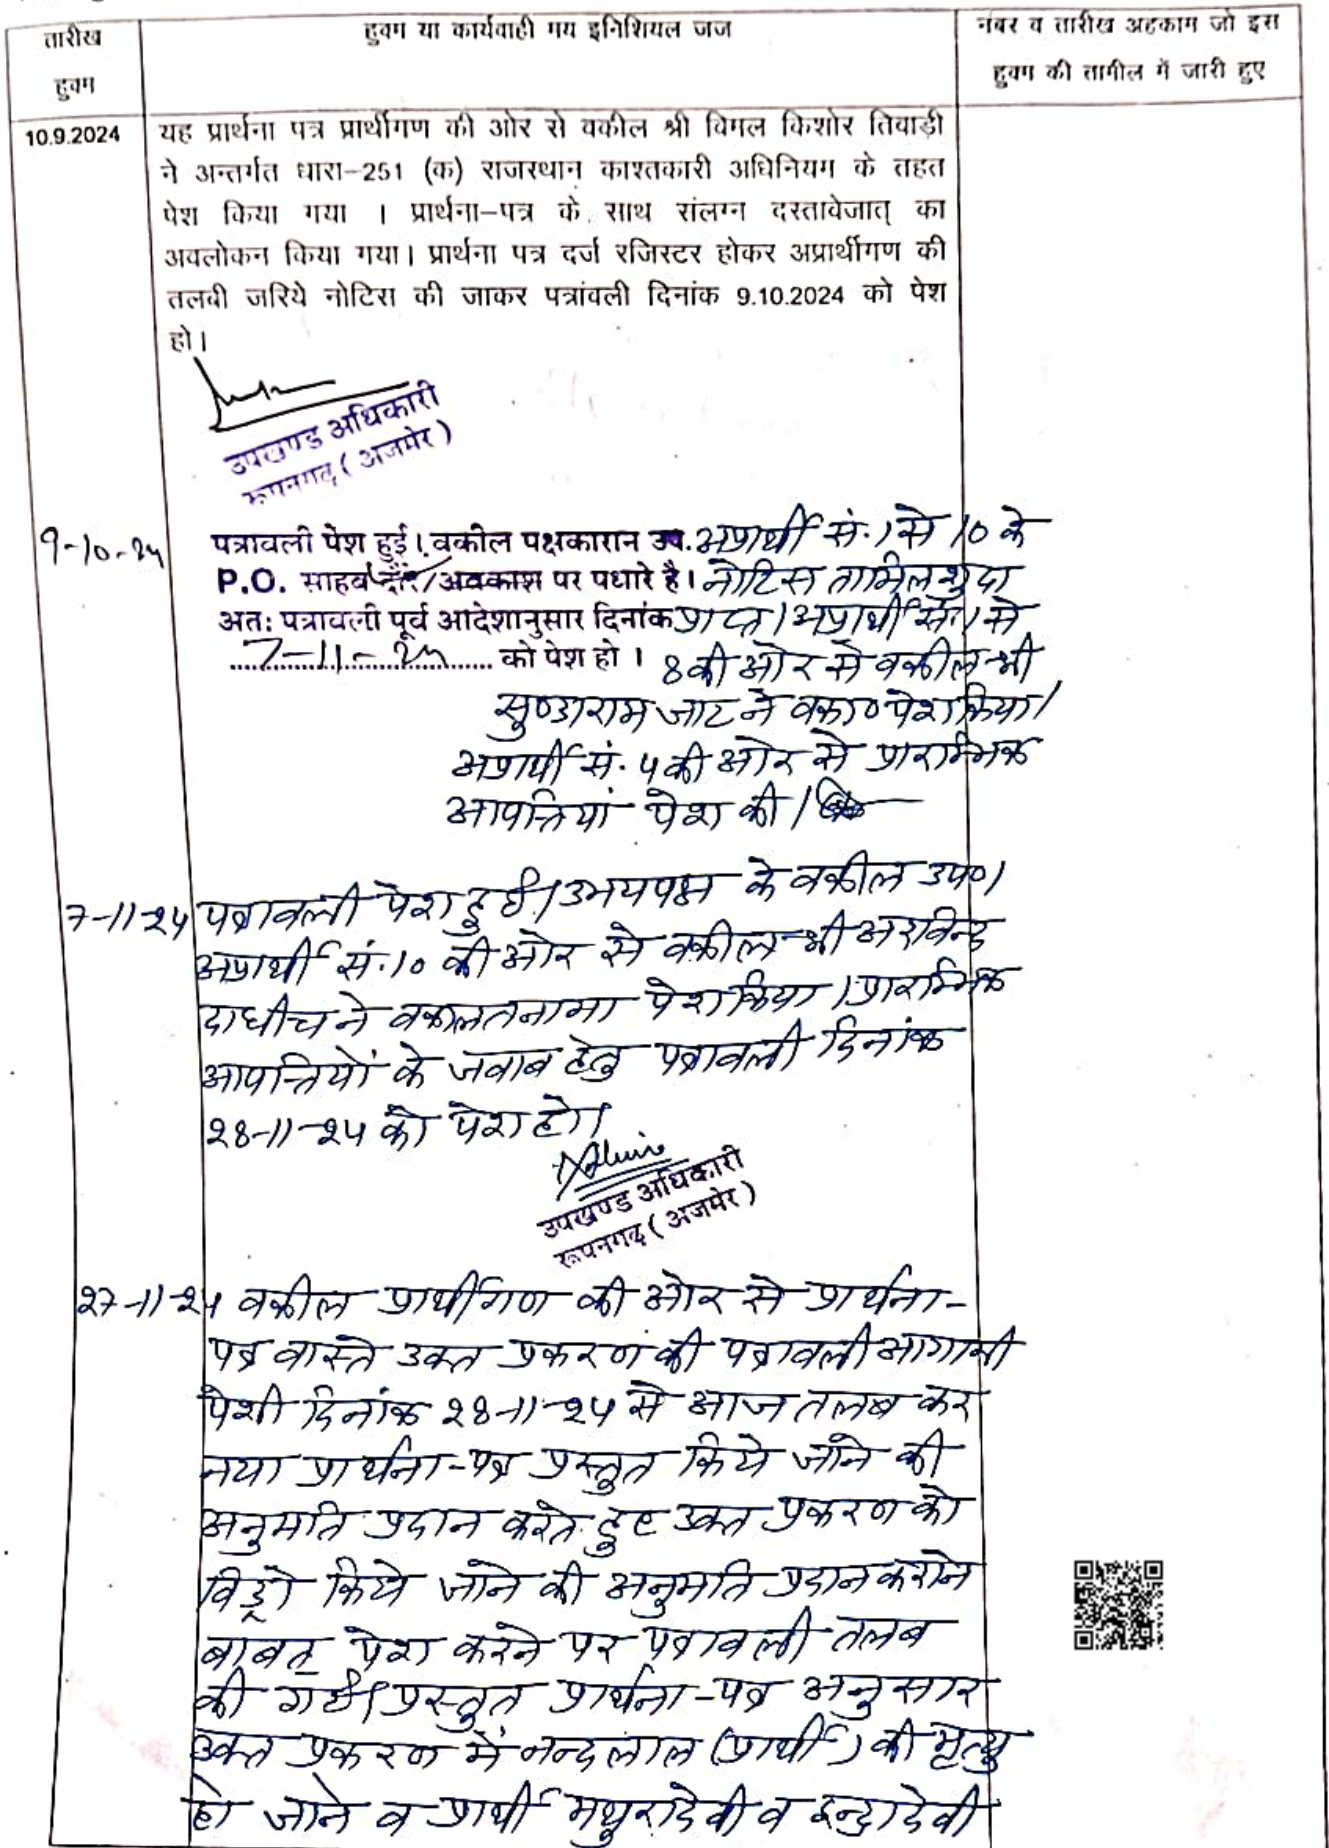 तारीख
हुक्म
हुक्म या कार्यवाही मय इनिशियल जज
नंबर व तारीख अहकाम जो इस
हुक्म की तामील में जारी हुए
10.9.2024
यह प्रार्थना पत्र प्रार्थीगण की ओर से वकील श्री विमल किशोर तिवाड़ी
ने अन्तर्गत धारा-251 (क) राजस्थान काश्तकारी अधिनियम के तहत
पेश किया गया । प्रार्थना-पत्र के साथ संलग्न दस्तावेजात् का
अवलोकन किया गया। प्रार्थना पत्र दर्ज रजिस्टर होकर अप्रार्थीगण की
तलवी जरिये नोटिस की जाकर पत्रांवली दिनांक 9.10.2024 को पेश
हो।
उपखण्ड अधिकारी
रूपनगढ़ (अजमेर)
9-10-24 पत्रावली पेश हुई। वकील पक्षकारान उप. अप्रार्थी सं. 1 से 10 के
P.O. साहब दौरे/अवकाश पर पधारे है। नोटिस तामिल शुदा
अतः पत्रावली पूर्व आदेशानुसार दिनांक प्राप्त। अप्रार्थी सं. 1 से
7-11-24 को पेश हो । 8 की ओर से वकील श्री
सुण्डाराम जाट ने वका० पेश किया।
अप्रार्थी सं. 4 की ओर से प्रारम्भिक
आपत्तियां पेश की।
7-11-24 पत्रावली पेश हुई। उभयपक्ष के वकील उप०।
अप्रार्थी सं. 10 की ओर से वकील श्री अरविन्द
दाधीच ने वकालतनामा पेश किया। प्रारम्भिक
आपत्तियों के जवाब हेतु पत्रावली दिनांक
28-11-24 को पेश हो।
उपखण्ड अधिकारी
रूपनगढ़ (अजमेर)
27-11-24 वकील प्रार्थीगण की ओर से प्रार्थना-
पत्र वास्ते उक्त प्रकरण की पत्रावली आगामी
पेशी दिनांक 28-11-24 से आज तलब कर
नया प्रार्थना-पत्र प्रस्तुत किये जाने की
अनुमति प्रदान करते हुए उक्त प्रकरण को
विड्रो किये जाने की अनुमति प्रदान कराने
बाबत् पेश करने पर पत्रावली तलब
की गई। प्रस्तुत प्रार्थना-पत्र अनुसार
उक्त प्रकरण में नन्दलाल (प्रार्थी) की मृत्यु
हो जाने व प्रार्थी मथुरादेवी व इन्द्रादेवी